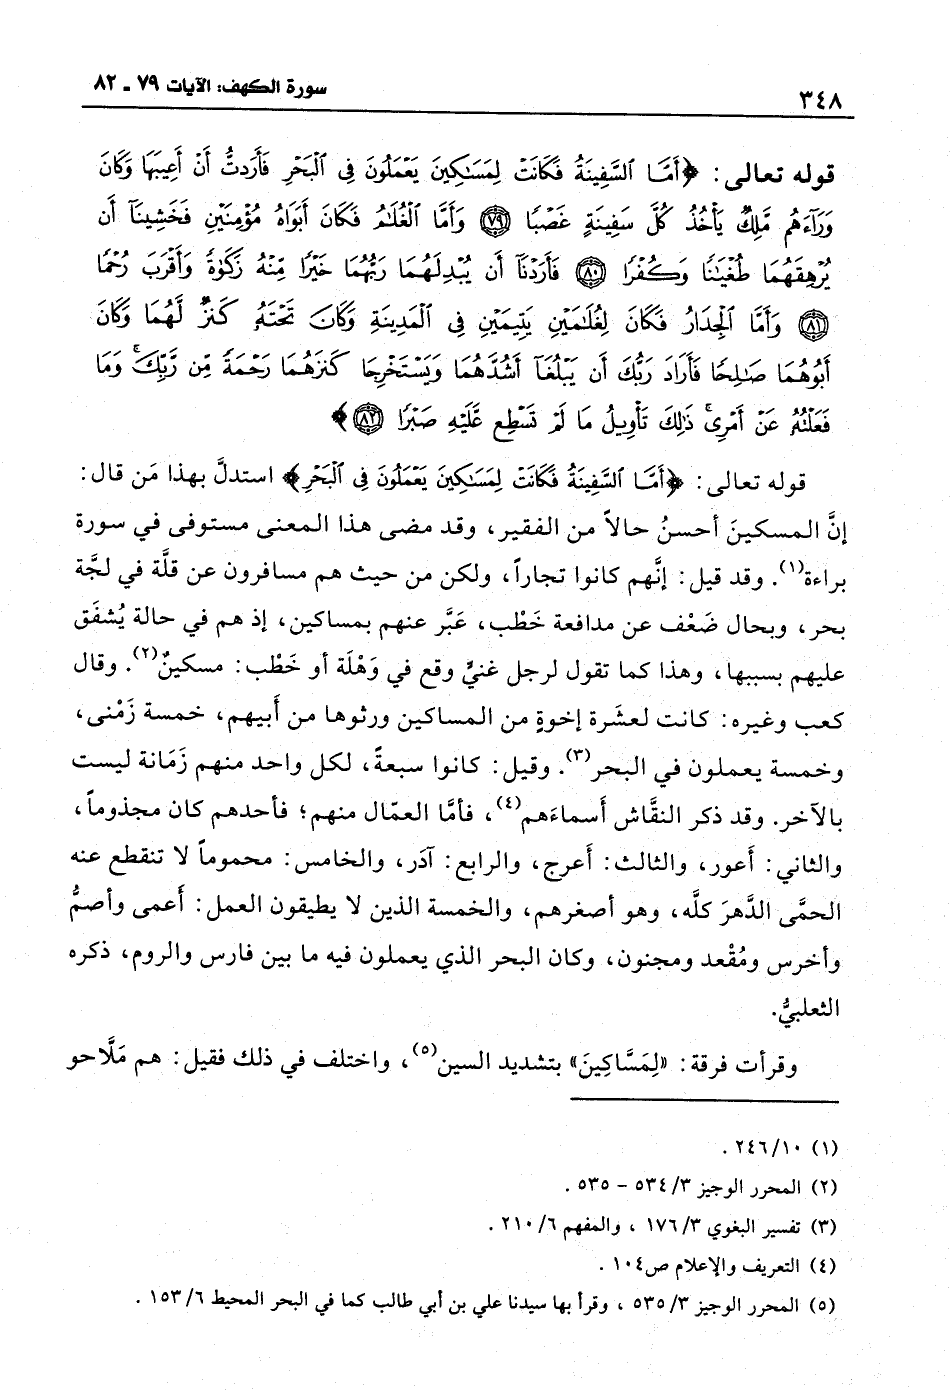 ٣٤٨
سورة الكهف: الآيات ٧٩ ـ ٨٢
قوله تعالى: ﴿أَمَّا ٱلسَّفِينَةُ فَكَانَتْ لِمَسَـٰكِينَ يَعْمَلُونَ فِى ٱلْبَحْرِ فَأَرَدتُّ أَنْ أَعِيبَهَا وَكَانَ
وَرَآءَهُم مَّلِكٌ يَأْخُذُ كُلَّ سَفِينَةٍ غَصْبًا ۝٧٩ وَأَمَّا ٱلْغُلَـٰمُ فَكَانَ أَبَوَاهُ مُؤْمِنَيْنِ فَخَشِينَآ أَن
يُرْهِقَهُمَا طُغْيَـٰنًا وَكُفْرًا ۝٨٠ فَأَرَدْنَآ أَن يُبْدِلَهُمَا رَبُّهُمَا خَيْرًا مِّنْهُ زَكَوٰةً وَأَقْرَبَ رُحْمًا
۝٨١ وَأَمَّا ٱلْجِدَارُ فَكَانَ لِغُلَـٰمَيْنِ يَتِيمَيْنِ فِى ٱلْمَدِينَةِ وَكَانَ تَحْتَهُۥ كَنزٌ لَّهُمَا وَكَانَ
أَبُوهُمَا صَـٰلِحًا فَأَرَادَ رَبُّكَ أَن يَبْلُغَآ أَشُدَّهُمَا وَيَسْتَخْرِجَا كَنزَهُمَا رَحْمَةً مِّن رَّبِّكَ ۚ وَمَا
فَعَلْتُهُۥ عَنْ أَمْرِى ۚ ذَٰلِكَ تَأْوِيلُ مَا لَمْ تَسْطِع عَّلَيْهِ صَبْرًا ۝٨٢﴾
قوله تعالى: ﴿أَمَّا ٱلسَّفِينَةُ فَكَانَتْ لِمَسَـٰكِينَ يَعْمَلُونَ فِى ٱلْبَحْرِ﴾ استدلَّ بهذا مَن قال:
إنَّ المسكينَ أحسنُ حالاً من الفقير، وقد مضى هذا المعنى مستوفى في سورة
براءة(١). وقد قيل: إنَّهم كانوا تجاراً، ولكن من حيث هم مسافرون عن قلَّة في لجَّة
بحر، وبحال ضَعْف عن مدافعة خَطْب، عبَّر عنهم بمساكين، إذ هم في حالة يُشفَق
عليهم بسببها، وهذا كما تقول لرجل غنيٍّ وقع في وَهْلَة أو خَطْب: مسكينٌ(٢). وقال
كعب وغيره: كانت لعشَرة إخوةٍ من المساكين ورثوها من أبيهم، خمسة زَمْنى،
وخمسة يعملون في البحر(٣). وقيل: كانوا سبعةً، لكل واحد منهم زَمَانة ليست
بالآخر. وقد ذكر النقَّاش أسماءَهم(٤)، فأمَّا العمّال منهم؛ فأحدهم كان مجذوماً،
والثاني: أَعور، والثالث: أَعرج، والرابع: آدَر، والخامس: محموماً لا تنقطع عنه
الحمَّى الدَّهرَ كلَّه، وهو أصغرهم، والخمسة الذين لا يطيقون العمل: أَعمى وأصمُّ
وأخرس ومُقْعد ومجنون، وكان البحر الذي يعملون فيه ما بين فارس والروم، ذكره
الثعلبيُّ.
وقرأت فرقة: «لِمَسَّاكِينَ» بتشديد السين(٥)، واختلف في ذلك فقيل: هم مَلَّاحو
(١) ٢٤٦/١٠ .
(٢) المحرر الوجيز ٥٣٤/٣ – ٥٣٥ .
(٣) تفسير البغوي ١٧٦/٣ ، والمفهم ٢١٠/٦ .
(٤) التعريف والإعلام ص١٠٤ .
(٥) المحرر الوجيز ٥٣٥/٣ ، وقرأ بها سيدنا علي بن أبي طالب كما في البحر المحيط ١٥٣/٦ .